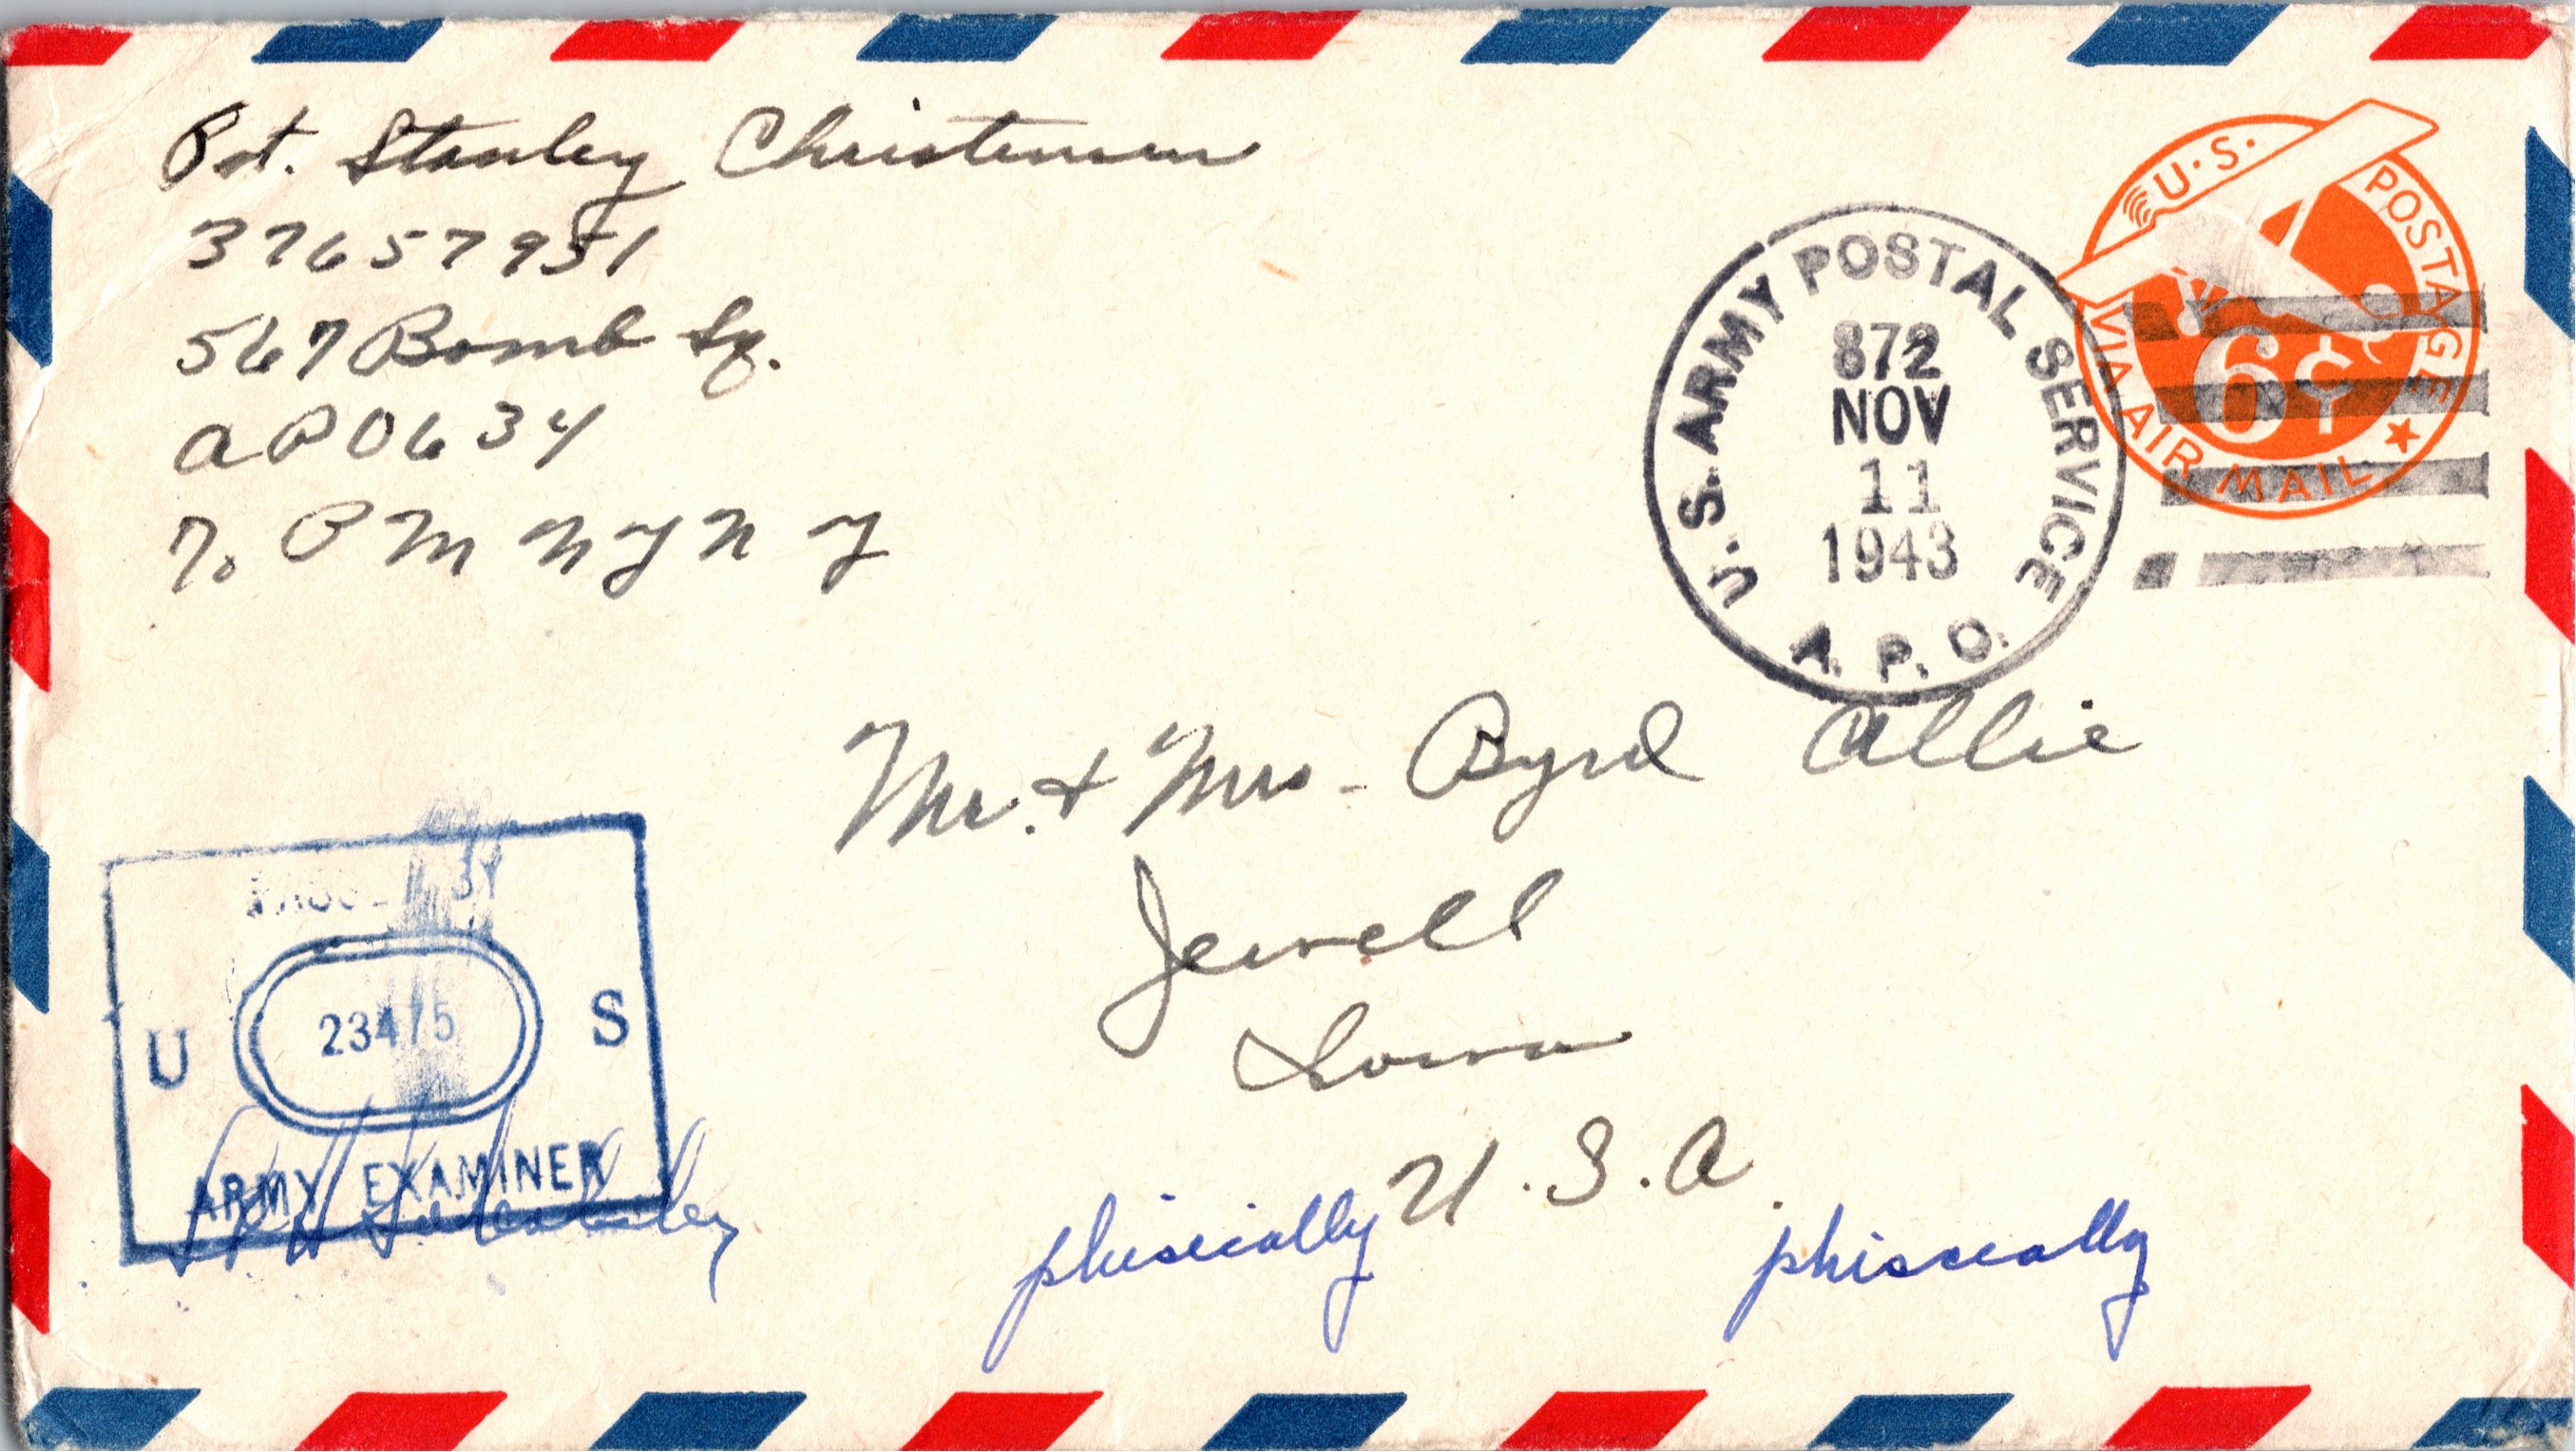 Pvt. Stanley Christensen
37657951
567 Bomb Sq.
APO 634
% P M N Y N Y
U.S. POSTAGE
VIA AIR MAIL
6¢
U.S. ARMY POSTAL SERVICE
872
NOV
11
1943
A. P. O.
Mr. & Mrs. Byrd Allie
Jewell
Iowa
U.S.A.
PASSED BY
U 23475 S
ARMY EXAMINER
phisically phiscally